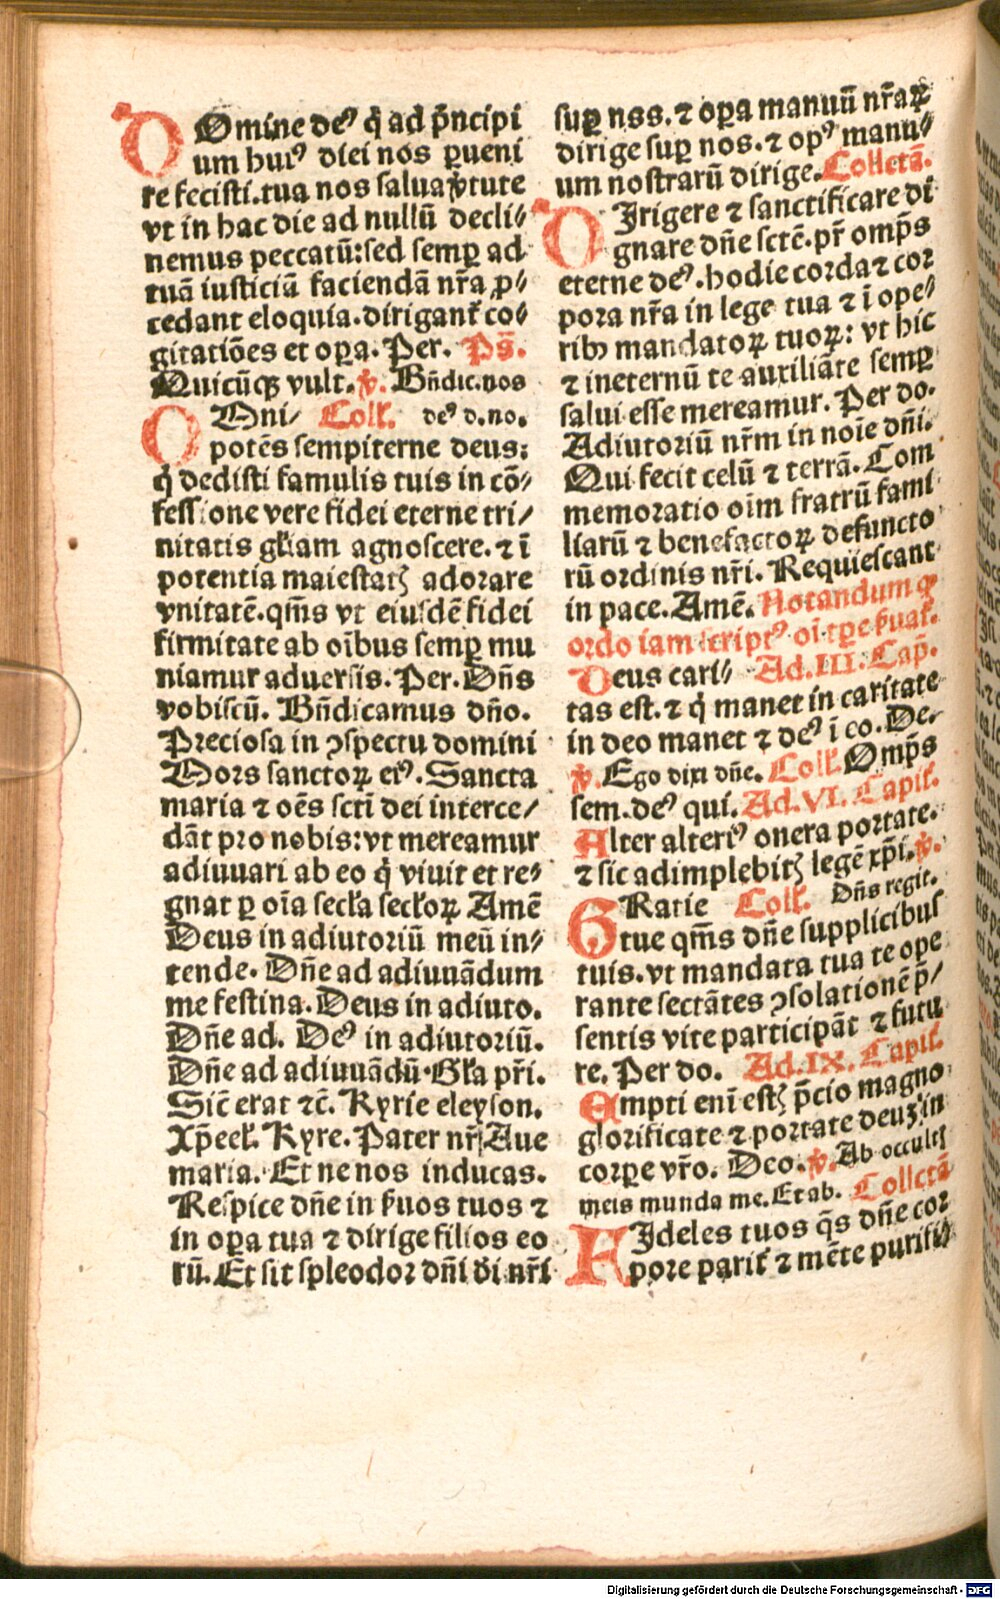 DOmine deꝰ q̇ ad pͥncipi
um huiꝰ diei nos ꝑueni
re fecisti.tua nos salua v̓tute
vt in hac die ad nullū decli⸗
nemus peccatū:sed semꝑ ad
tuā iusticiā faciendā nr̄a ꝓ⸗
cedant eloquia.dirigant᷑ co⸗
gitatiōes et oꝑa. Per. Ps̄.
Quicūqꝫ vult. ꝟ. Bn̄dic.nos
OMni⸗ Coll̓. deꝰ d.no.
potēs sempiterne deus:
q̇ dedisti famulis tuis in cō⸗
fessione vere fidei eterne tri⸗
nitatis gl̓iam agnoscere. ⁊ ī
potentia maiestatꝭ adorare
vnitatē.qm̄s vt eiusdē fidei
firmitate ab oībus semꝑ mu
niamur aduersis. Per. Dn̄s
vobiscū. Bn̄dicamus dn̄o.
Preciosa in ꝯspectu domini
Mors sanctoꝝ eiꝰ. Sancta
maria ⁊ oēs scti dei interce⸗
dāt pro nobis:vt mereamur
adiuuari ab eo q̇ viuit et re⸗
gnat ꝑ oīa secl̓a secl̓oꝝ Amē
Deus in adiutoriū meū in⸗
tende. Dn̄e ad adiuuādum
me festina. Deus in adiuto.
Dn̄e ad. Deꝰ in adiutoriū.
Dn̄e ad adiuuādū. Gl̓a pr̄i.
Sic̄ erat ⁊c̄. Kyrie eleyson.
Xp̄eel̓. Kyre. Pater nr̄ Aue
maria. Et ne nos inducas.
Respice dn̄e in s̓uos tuos ⁊
in oꝑa tua ⁊ dirige filios eo
rū. Et sit spleodor dn̄i di nr̄i
suꝑ nos. ⁊ oꝑa manuū nr̄aꝝ
dirige suꝑ nos. ⁊ opꝰ manu⸗
um nostrarū dirige. Collctā.
DIrigere ⁊ sanctificare di
gnare dn̄e sctē. pr̄ omp̄s
eterne deꝰ. hodie corda ⁊ cor
pora nr̄a in lege tua ⁊ ī ope⸗
ribꝫ mandatoꝝ tuoꝝ: vt hic
⁊ ineternū te auxiliāte semꝑ
salui esse mereamur. Per do.
Adiutoriū nr̄m in noīe dn̄i.
Qui fecit celū ⁊ terrā. Com
memoratio oīm fratrū fami
liarū ⁊ benefactoꝝ defuncto
rū ordinis nr̄i. Requiescant
in pace. Amē. Notandum ꝙ
ordo iam script̓ꝰ oī tꝑe s̓uat᷑.
Deus cari⸗ Ad. III. Cap̄.
tas est. ⁊ q̇ manet in caritate
in deo manet ⁊ deꝰ ī eo. De.
ꝟ. Ego dixi dn̄e. Coll̓. Omp̄s
sem. deꝰ qui. Ad. VI. Capit̓.
Alter alteriꝰ onera portate.
⁊ sic adimplebitꝭ legē xp̄i. ꝟ.
GRatie Coll̓. Dn̄s regit.
tue qm̄s dn̄e supplicibus
tuis. vt mandata tua te ope
rante sectātes ꝯsolationē p̄⸗
sentis vite participāt ⁊ futu
re. Per do. Ad. IX. Capit̓.
Empti enī estꝭ p̄cio magno
glorificate ⁊ portate deuꝫ in
corꝑe vr̄o. Deo. ꝟ. Ab occultꝭ
meis munda me. Et ab. Collctā
FIdeles tuos q̄s dn̄e cor
pore parit̓ ⁊ mēte purifi⸗
Digitalisierung gefördert durch die Deutsche Forschungsgemeinschaft - DFG